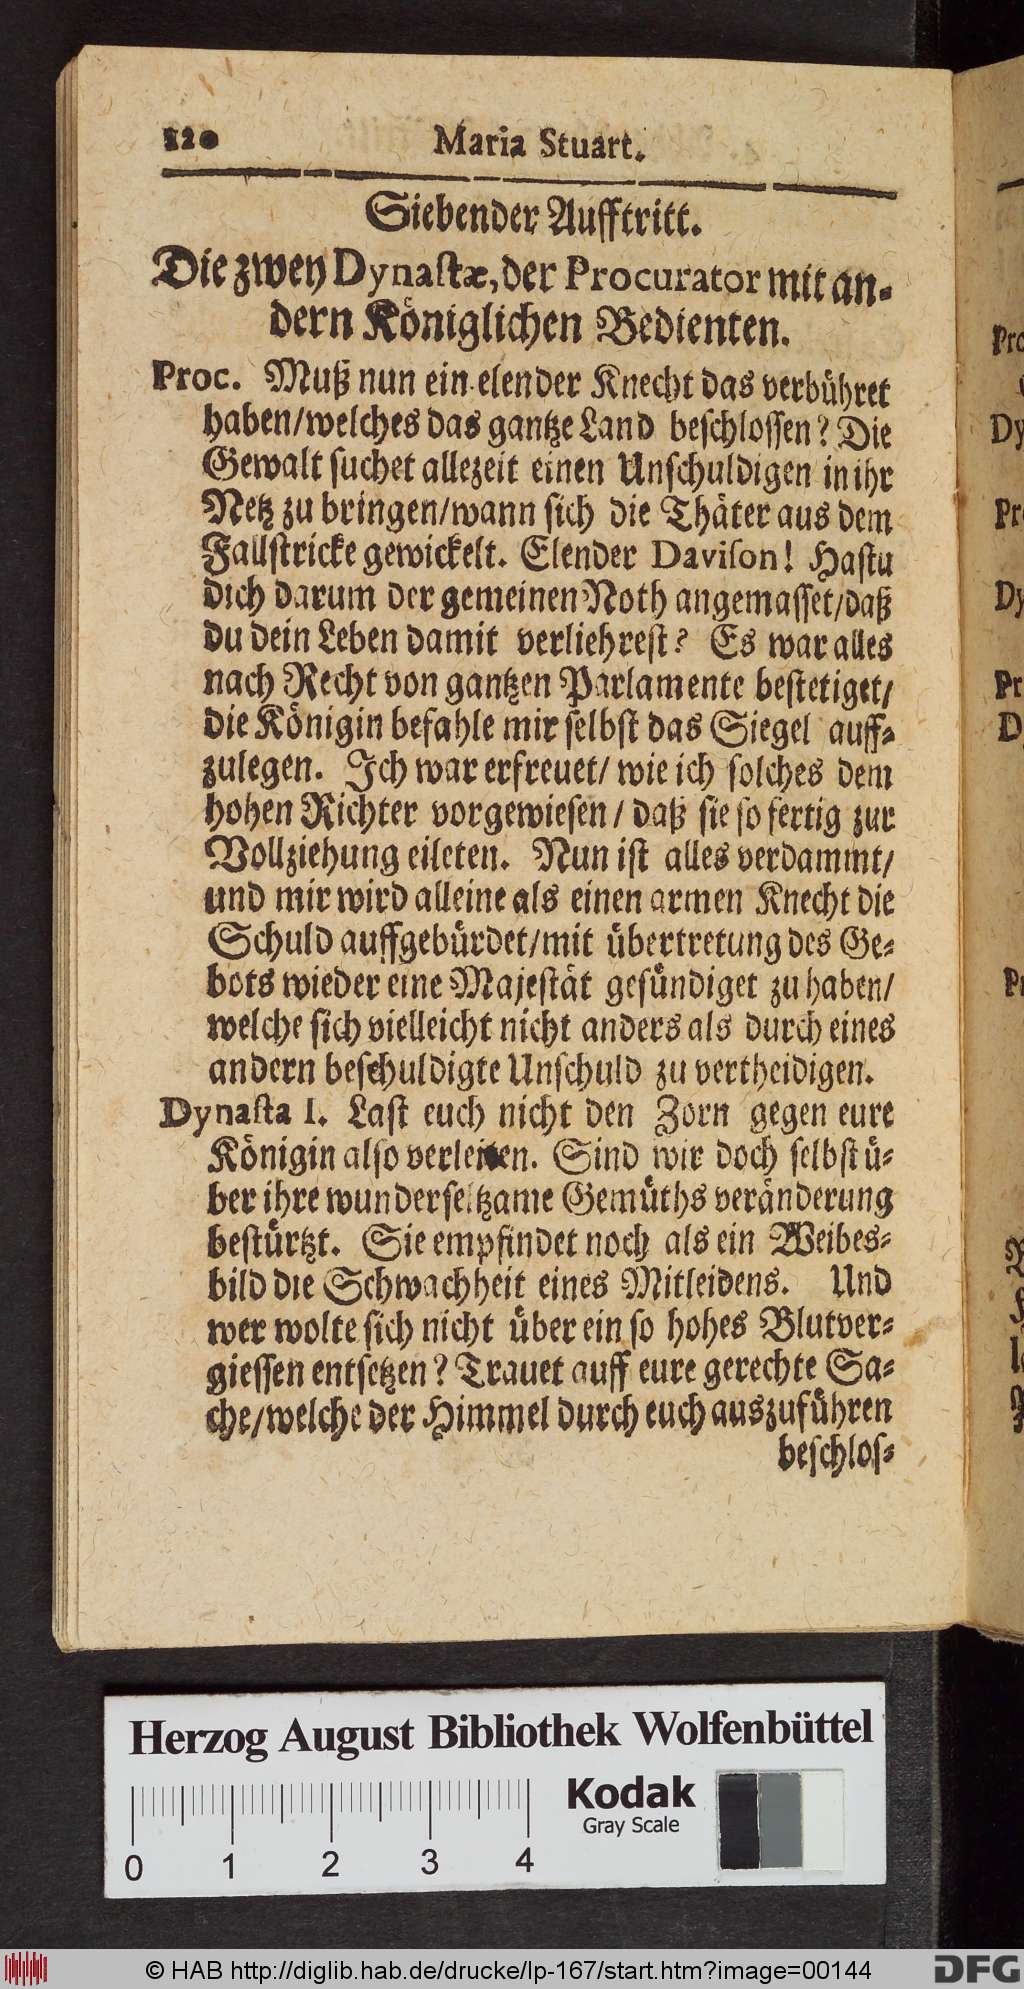 120 Maria Stuart.
Siebender Aufftritt.
Die zwey Dynastæ, der Procurator mit an-
dern Königlichen Bedienten.
Proc. Muß nun ein elender Knecht das verbühret
haben/welches das gantze Land beschlossen? Die
Gewalt suchet allezeit einen Unschuldigen in ihr
Netz zu bringen/wann sich die Thäter aus dem
Fallstricke gewickelt. Elender Davison! Hastu
dich darum der gemeinen Noth angemasset/daß
du dein Leben damit verliehrest? Es war alles
nach Recht von gantzen Parlamente bestetiget/
die Königin befahle mir selbst das Siegel auff-
zulegen. Ich war erfreuet/ wie ich solches dem
hohen Richter vorgewiesen/ daß sie so fertig zur
Vollziehung eileten. Nun ist alles verdammt/
und mir wird alleine als einen armen Knecht die
Schuld auffgebürdet/mit übertretung des Ge-
bots wieder eine Majestät gesündiget zu haben/
welche sich vielleicht nicht anders als durch eines
andern beschuldigte Unschuld zu vertheidigen.
Dynasta I. Last euch nicht den Zorn gegen eure
Königin also verleiten. Sind wir doch selbst ü-
ber ihre wunderseltzame Gemüths veränderung
bestürtzt. Sie empfindet noch als ein Weibes-
bild die Schwachheit eines Mitleidens. Und
wer wolte sich nicht über ein so hohes Blutver-
giessen entsetzen? Trauet auff eure gerechte Sa-
che/welche der Himmel durch euch auszuführen
beschlos-
Herzog August Bibliothek Wolfenbüttel
Kodak
Gray Scale
0 1 2 3 4
© HAB http://diglib.hab.de/drucke/lp-167/start.htm?image=00144
DFG